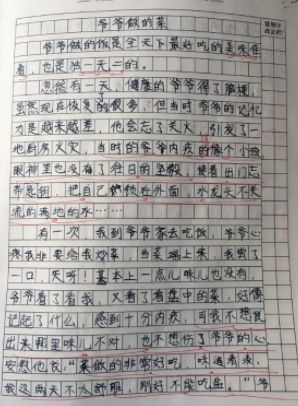 爷爷做的菜
爷爷做的饭是全天下最好吃的美味佳
肴，也是独一无二的。
忽然有一天，健康的爷爷得了脑梗，
虽然现在恢复的很多，但当时爷爷的记忆
力是越来越差，他会忘了关火，引发了一
地厨房火灾，当时的爷爷内疚的像个小孩
眼神里也没有了往日的坚毅，接着出门忘
带钥匙，把自己锁在外面，水龙头不关
流的满地的水……
有一次，我到爷爷家去吃饭，爷爷心
疼我非要给我炒菜，当菜端上来，我尝了
一口，天呀！基本上一点儿味儿也没有，
爷爷看了看我，又看了看盘中的菜，好像
记起了什么，感到十分内疚，可我不想说
出来哪里味儿不对，也不想伤了爷爷的心，
安慰他说："菜做的非常好吃，味道着淡，
我这两天不太舒服，刚好不能吃盐。"爷